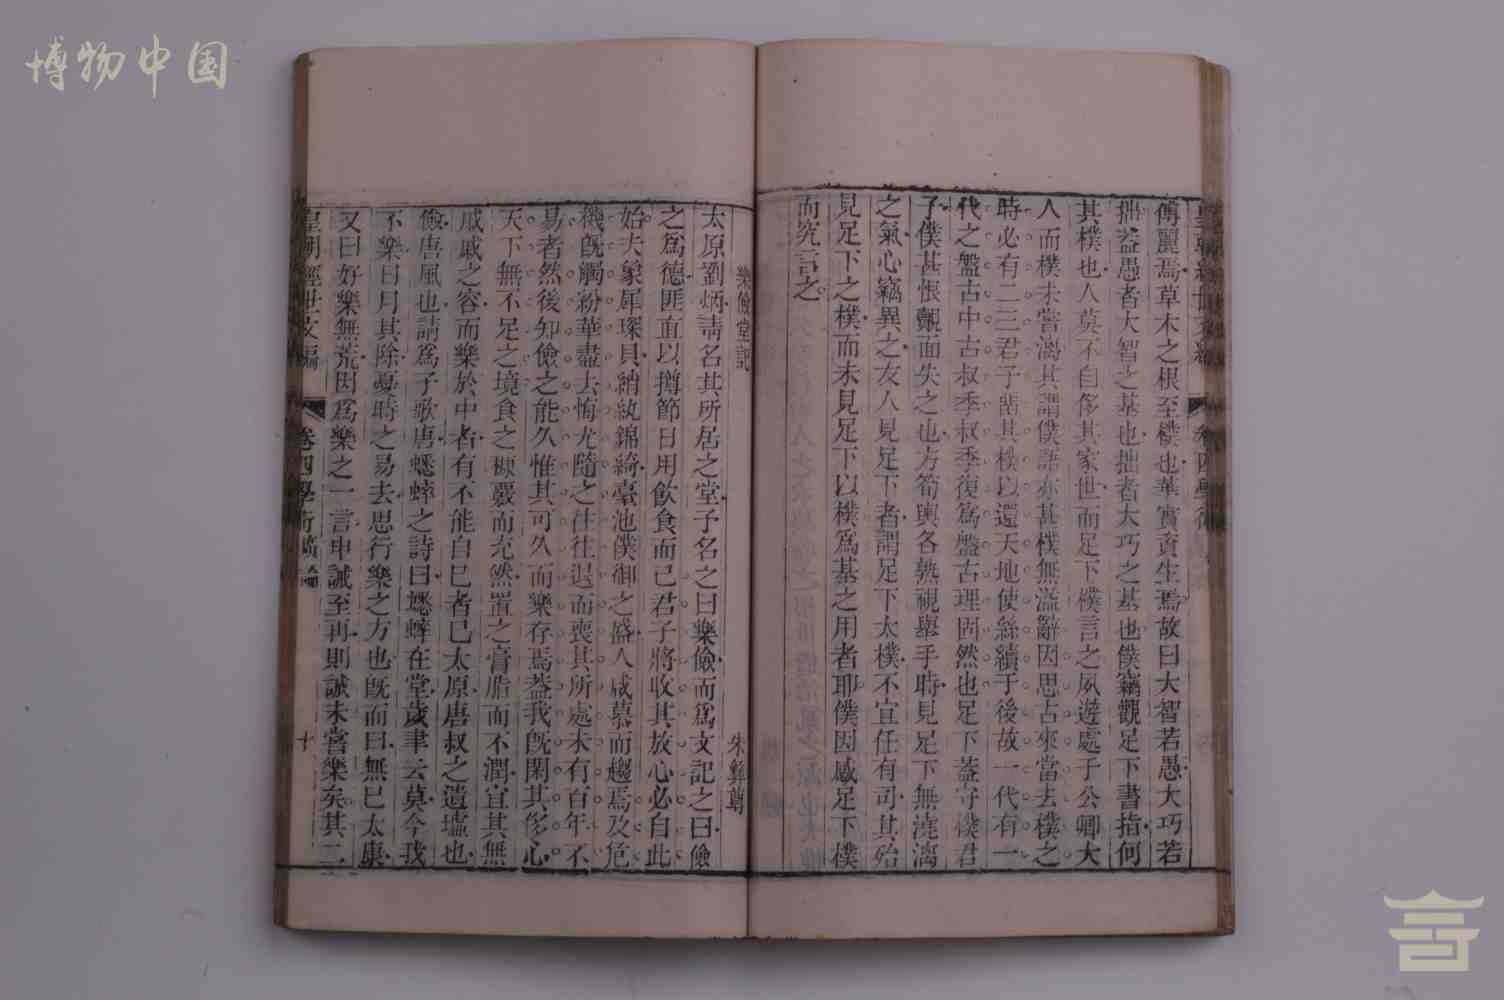 博物中国
傳麗焉草木之根至樸也華實資生焉故曰大智若愚大巧若
拙蓋愚者大智之基也拙者大巧之基也僕竊觀足下書指何
其樸也人莫不自侈其家世而足下樸言之夙遊處子公卿大
人而樸未嘗澆其謂僕語亦甚樸無溢辭因思古來當去樸之
時必有二三君子畱其樸以還天地使絲續于後故一代有一
代之盤古中古叔季叔季復為盤古理固然也足下蓋守樸君
子僕甚恨覿面失之也方筍輿各熟視舉手時見足下無澆漓
之氣心竊異之友人見足下者謂足下太樸不宜任有司其殆
見足下之樸而未見足下以樸為基之用者耶僕因感足下樸
而究言之
樂儉堂記 朱彝尊
太原劉炳請名其所居之堂予名之曰樂儉而為文記之曰儉
之為德匪直以撙節日用飲食而已君子將收其放心必自此
始夫象犀琛貝綃紈錦綺臺池僕御之盛人咸慕而趨焉及危
機既觸紛華盡去悔尤隨之往往退而喪其所處未有百年不
易者然後知儉之能久惟其可久而樂存焉蓋我既閑其侈心
天下無不足之境食之槪藙而充然置之膏脂而不潤宜其無
戚戚之容而樂於中者有不能自已者已太原唐叔之遺墟也
儉唐風也請為子歌唐蟋蟀之詩曰蟋蟀在堂歲聿云莫今我
不樂日月其除憂時之易去思行樂之方也既而曰無已太康
又曰好樂無荒因為樂之一言申誡至再則誠未嘗樂矣其二
皇朝經世文編 卷四學術 廣論 十